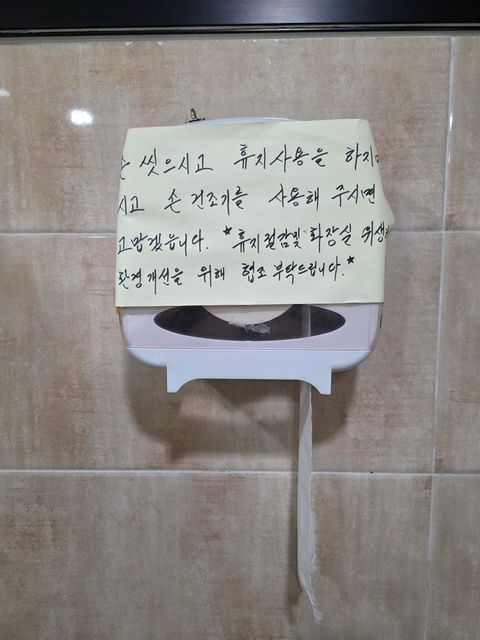 손 씻으시고 휴지사용을 하지마
시고 손 건조기를 사용해 주시면
고맙겠읍니다. *휴지절감및 화장실 위생
환경개선을 위해 협조 부탁드립니다.*